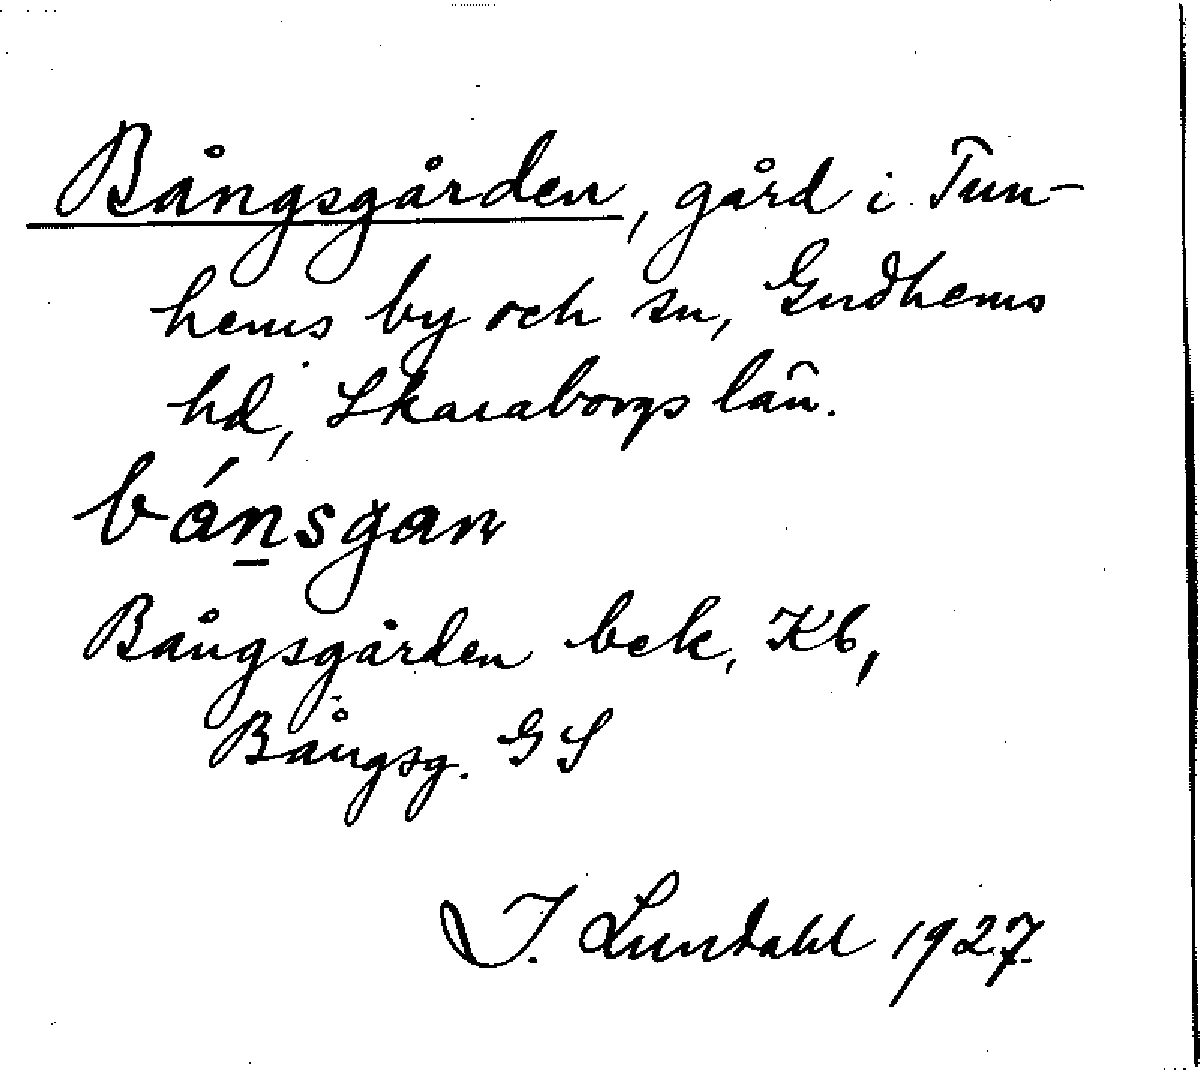 Bångsgården, gård i Tun-
hems by och sn, Gudhems
hd, Skaraborgs län.
bánsgan
Bångsgården bek. Kb,
Bångsg. GS
I. Lundahl 1927